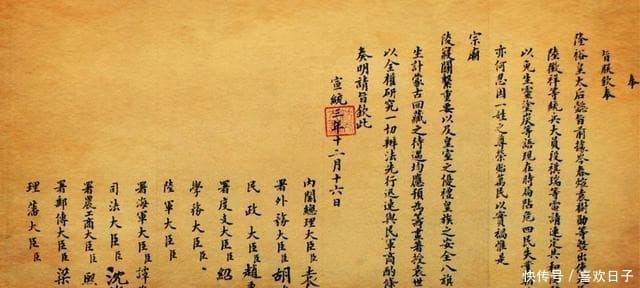 奉
旨朕欽奉
隆裕皇太后懿旨前據岑春煊袁樹勛等暨出使
陸徵祥等統兵大員段祺瑞等電請速定共和
以免生靈塗炭等語現在時局阽危四民失業
亦何忍因一姓之尊榮貽萬民以實禍惟是
宗廟
陵寢關繫重要以及皇室之優禮皇族之安全八旗
生計蒙古回藏之待遇均應預為籌畫著授袁世
以全權研究一切辦法先行迅速與民軍商酌條
奏明請旨欽此
宣統三年十二月十六日
內閣總理大臣臣袁
署外務大臣臣胡
民政大臣臣趙
署度支大臣臣紹
學務大臣臣
陸軍大臣臣
署海軍大臣臣譚
司法大臣臣沈
署農工商大臣臣熙
署郵傳大臣臣梁
理藩大臣臣
快传号/喜欢日子